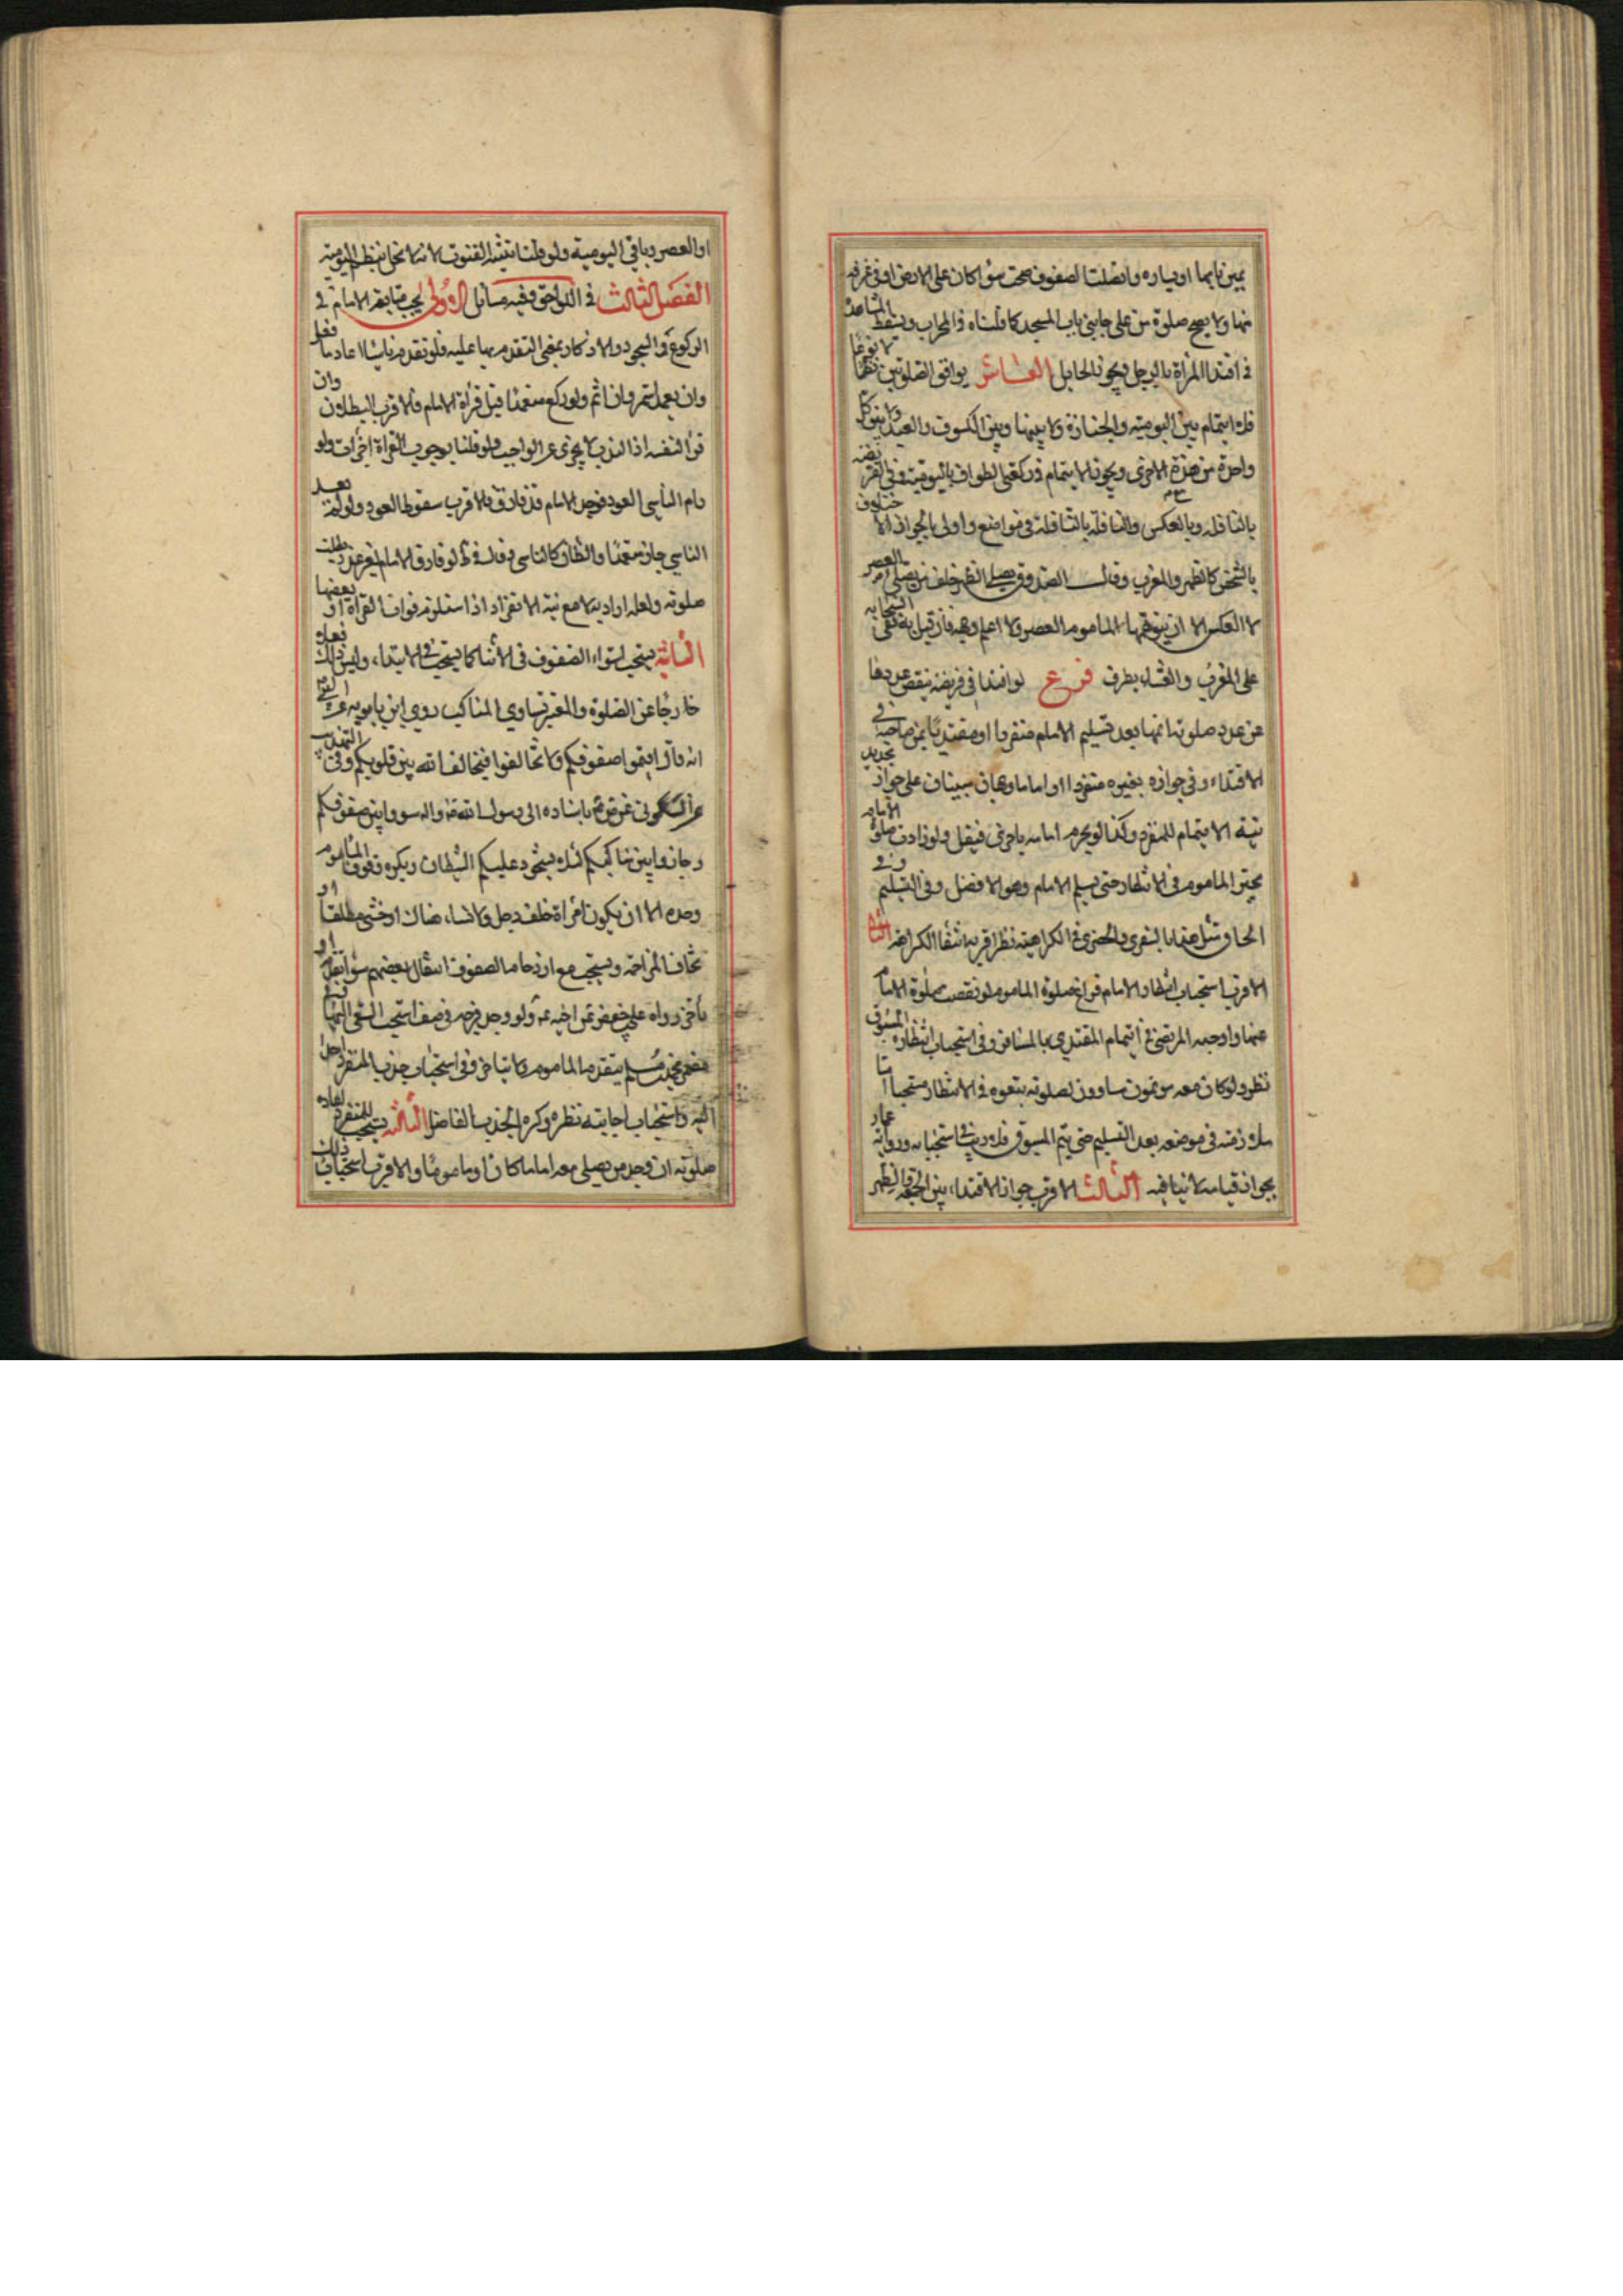 يمين بابها او يساره واتصلت الصفوف صحت سواء كان على الارض او في غرفة
منها ولا يصح صلوة من على جانبي باب المسجد كما قلناه في المحراب وتسقط المشاهدة
في اقتداء المرأة بالرجل ويجوز الحايل العاشر توافق الصلوتين نظما لا نوعا
فلا ايتمام بين اليومية والجنازة ولا بينها وبين الكسوف والعيد ولا بين كل
واحدة من هذه والاخرى ويجوز الايتمام في ركعتي الطواف باليومية وفي الفريضة
بالنافلة وبالعكس والنافلة بالنافلة في مواضع واولى بالجواز الاختلاف
بالشخص كالظهر والمغرب وقال الصدوق يصلي الظهر خلف من يصلي العصر
لا العكس الا ان يتوهمها المأموم العصر ولا اعلم وجهه فان قيل به ففي انسحابه
على المغرب والعشاء بطرف فرع لو اقتدا في فريضة ينقص عددها
عن عدد صلوته اتمها بعد تسليم الامام منفردا او مقتديا بمن صاحبه في
الاقتداء وفي جوازه بغيره منفردا او اماما وجهان مبنيان على جواز تجديد
نية الايتمام للمنفرد وكذا لو يحرم امامه باخرى فينقل ولو زادت صلوة الامام
تخير المأموم في الانتظار حتى يسلم الامام وهو الافضل وفي التسليم وفي
الحاق مثل هذا بالسفري والحضري في الكراهية نظر اقربه انتفاء الكراهة الثاني
الاقرب استحباب انتظار الامام فراغ صلوة المأموم لو نقصت صلوة الامام
عنها واوجبه المرتضى في ايتمام المقتدي بالمسافر وفي استحباب انتظاره المسبوق
نظر ولو كان معه مؤتمون مساوون لصلوته تبعوه في الانتظار مستحبا اما
ملازمته في موضعه بعد التسليم حتى يتم المسبوق فلا ريب في استحبابه ورواية عمار
بجواز قيامه لا ينافيه الثالث الاقرب جواز الاقتداء بين الجمعة والظهر
او العصر وباقي اليومية ولو قلنا بتثنية القنوت لانه لا يخل بنظم اليومية
الفصل الثالث في اللواحق وفيه مسائل الاولى يجب متابعة الامام في
الركوع والسجود والاذكار بمعنى التقدم بها عليه فلو تقدم ناسيا اعاد ما فعل
وان تعمد استمر وان اثم ولو ركع متعمدا قبل قراءة الامام فالاقرب البطلان وان
قرا لنفسه اذ الندب لا يجزي عن الواجب ولو قلنا بوجوب القراءة اجزأت ولو
رام الناسي العود فوجد الامام قد فارق فالاقرب سقوط العود ولو لم يعد
الناسي جاز متعمدا والظان كالناسي وقال في ط لو فارق الامام لغير عذر بطلت
صلوته ولعله اراد به لا مع نية الانفراد اذا استلزم فوات القراءة او بعضها
الثانية يستحب استواء الصفوف في الاثناء كما يستحب في الابتداء وليس ذلك فعله
خارجا عن الصلوة والمعتبر تساوي المناكب روى ابن بابويه عن النبي
انه قال اقيموا صفوفكم ولا تخالفوا فيخالف الله بين قلوبكم وفي التهذيب
عن السكوني عن ص ع باسناده الى رسول الله ص واله سووا بين صفوفكم
وحاذوا بين مناكبكم لئلا يستحوذ عليكم الشيطان ويكره وقوف المأموم
وحده الا ان يكون امرأة خلف رجل ولا نساء هناك او خنثى مطلقا او
تخاف المزاحمة ويستحب مع ازدحام الصفوف انتقال بعضهم سواء تقدم او
تأخر رواه علي بن جعفر عن اخيه ع ولو وجد فرجة في صف استحب السعي اليها
ففي خبر محمد بن مسلم يتقدم المأموم لا يتأخر وفي استحباب جذب المنفرد رجلا
اليه واستحباب اجابته نظر وكره الجذب الفاضل الثالثة يستحب للمنفرد اعادة
صلوته ان وجد من يصلي معه اماما كان او مأموما والاقرب استحباب ذلك